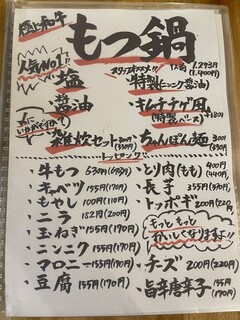 もつ鍋
人気No.1!!
塩
醤油
1人前 1,273円
(1,400円)
特製(ニンニク醤油)
キムチチゲ風
(特製ベース) +180円
雑炊セット
ちゃんぽん麺 300円
(330円)
トッピング
・牛もつ 630円(693円)
・キャベツ 155円(170円)
・もやし 100円(110円)
・ニラ 182円(200円)
・玉ねぎ 155円(170円)
・ニンニク 155円(170円)
・マロニー 155円(170円)
・豆腐 155円(170円)
・とり肉(もも) 400円
(440円)
・長芋 355円(390円)
・トッポギ 200円(220円)
もっともっと
おいしくなりますよ!!
・チーズ 200円(220円)
・旨辛唐辛子 155円
(170円)